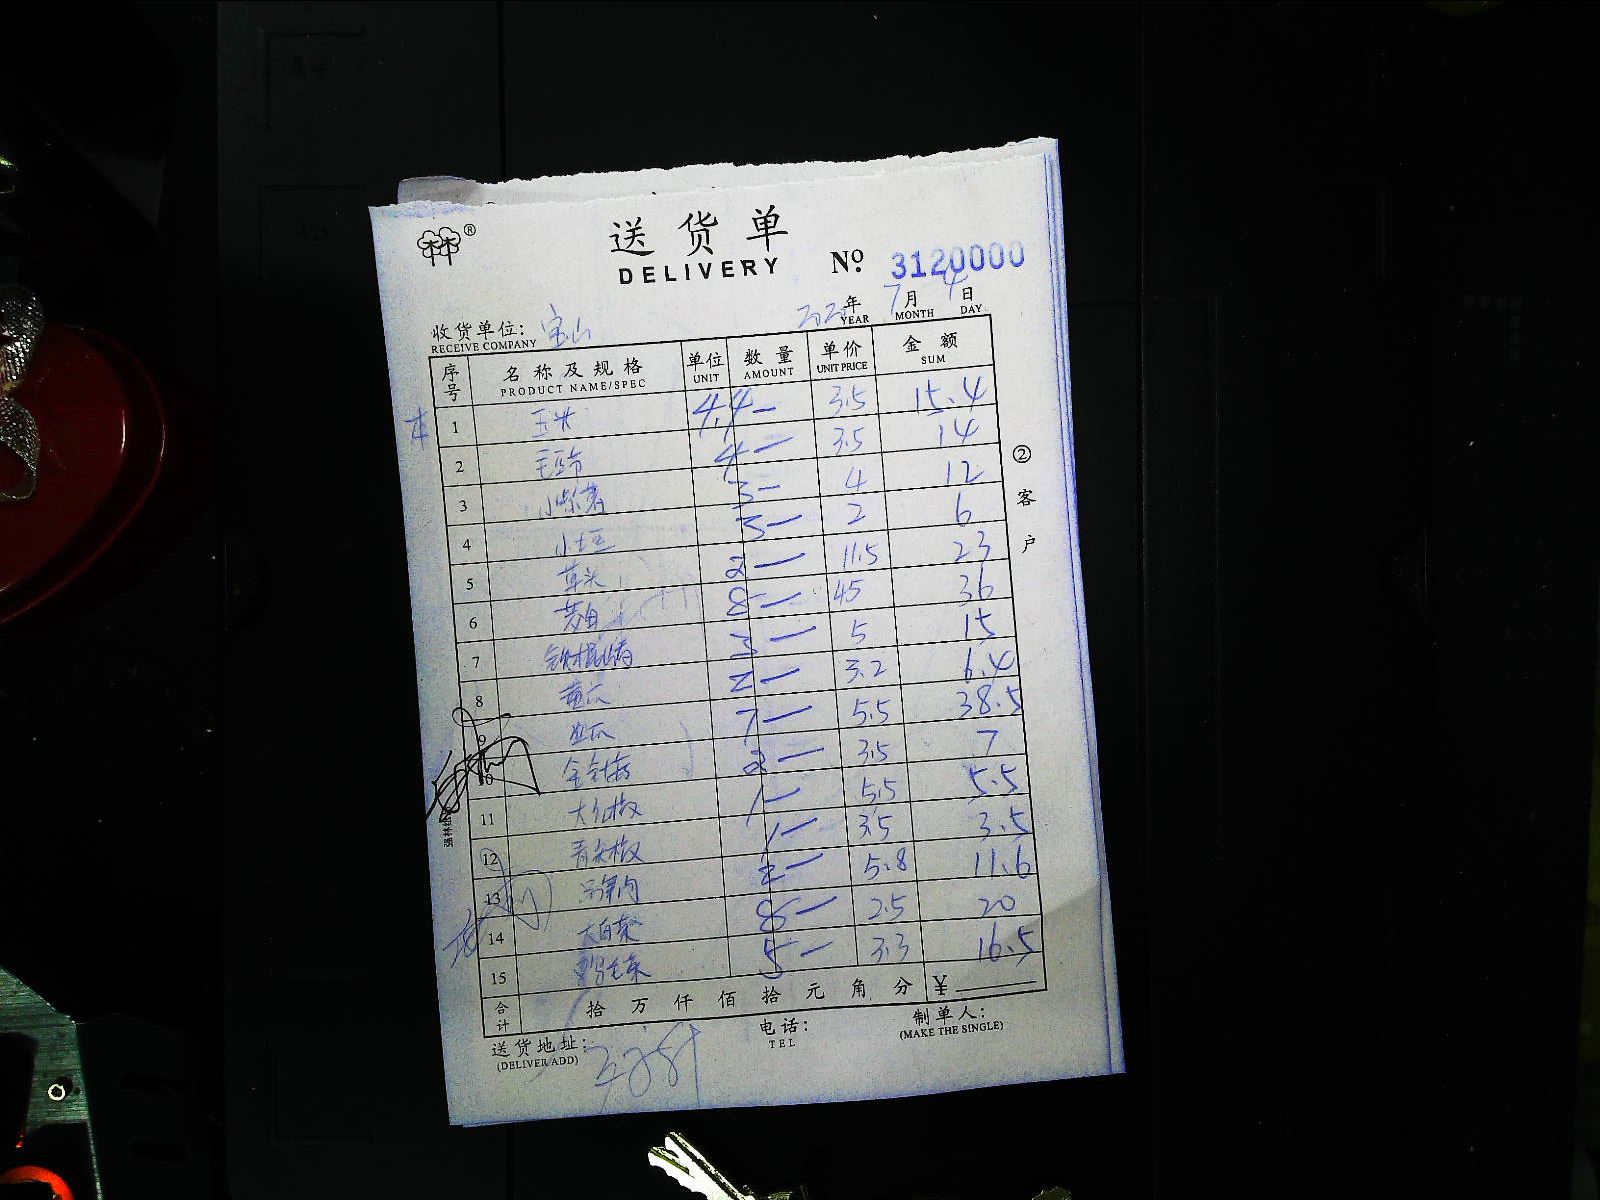 ®
送货单
DELIVERY
№ 3120000
收货单位: 宝山 年 7月 4日
RECEIVE COMPANY YEAR MONTH DAY
序号 名称及规格 单位 数量 单价 金额
PRODUCT NAME/SPEC UNIT AMOUNT UNIT PRICE SUM
1 玉米 4.4 — 3.5 15.4
2 毛豆节 4 — 3.5 14
3 3 — 4 12
4 小土豆 3 — 2 6
5 草头 2 — 11.5 23
6 8 — 45 36
7 铁棍山药 3 — 5 15
8 黄瓜 2 — 3.2 6.4
9 7 — 5.5 38.5
10 金针菇 2 — 3.5 7
11 大红椒 1 — 5.5 5.5
12 青尖椒 1 — 3.5 3.5
13 2 — 5.8 11.6
14 大白菜 8 — 2.5 20
15 鸡毛菜 5 — 3.3 16.5
合计 拾 万 仟 佰 拾 元 角 分 ¥
②客户
送货地址: 电话: 制单人:
(DELIVER ADD) TEL (MAKE THE SINGLE)